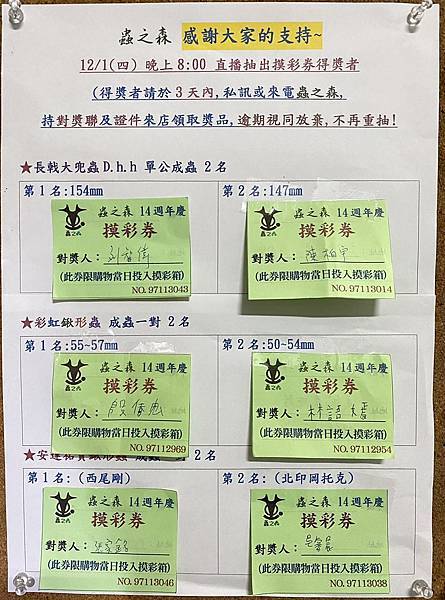 蟲之森 感謝大家的支持~
12/1(四) 晚上8:00 直播抽出摸彩券得獎者
(得獎者請於3天內,私訊或來電蟲之森,
持對獎聯及證件來店領取獎品,逾期視同放棄,不再重抽!
★長戟大兜蟲D.h.h 單公成蟲 2名
第1名:154mm
第2名:147mm
蟲之森 14週年慶
摸彩券
蟲之森
對獎人:劉智偉
(此券限購物當日投入摸彩箱)
NO. 97113043
蟲之森 14週年慶
摸彩券
蟲之森
對獎人:陳柏宇
(此券限購物當日投入摸彩箱)
NO. 97113014
★彩虹鍬形蟲 成蟲一對 2名
第1名:55~57mm
第2名:50~54mm
蟲之森 14週年慶
摸彩券
蟲之森
對獎人:殷偉忠
(此券限購物當日投入摸彩箱)
NO. 97112969
蟲之森 14週年慶
摸彩券
蟲之森
對獎人:林語
(此券限購物當日投入摸彩箱)
NO. 97112954
★安達佑實鍬形蟲 成蟲 2名
第1名:(西尾剛)
第2名:(北印岡托克)
蟲之森 14週年慶
摸彩券
蟲之森
對獎人:張家銘
(此券限購物當日投入摸彩箱)
NO. 97113046
蟲之森 14週年慶
摸彩券
蟲之森
對獎人:
(此券限購物當日投入摸彩箱)
NO. 97113038